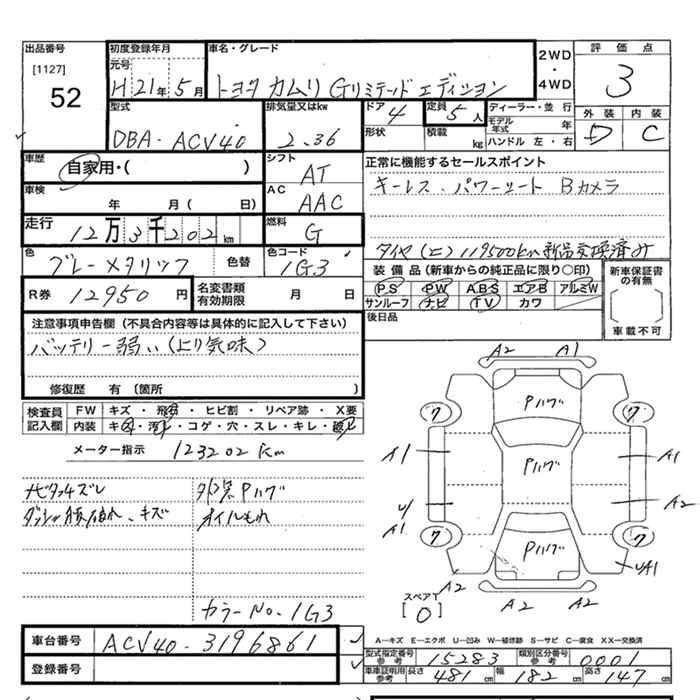 出品番号
[1127]
52
初度登録年月
元号
H21年5月
車名・グレード
トヨタ カムリ Gリミテッド エディション
2WD
・
4WD
評価点
3
型式
DBA-ACV40
排気量又はkw
2.36
ドア
4
定員
5人
ディーラー・並行
モデル年式 年
形状
積載 kg
ハンドル 左・右
外装 内装
D C
車歴
自家用・( )
シフト
AT
正常に機能するセールスポイント
キーレス.パワーシート Bカメラ
車検
年 月( 日)
AC
AAC
走行
12万3千202km
燃料
G
タイヤ(ニ)119500km新品交換済み
色
グレーメタリック
色替
色コード
1G3
装備品(新車からの純正品に限り○印)
PS PW ABS エアB アルミW
サンルーフ ナビ TV カワ
新車保証書の有無
[ ]
車載不可
R券
12950円
名変書類
有効期限
月 日
後日品
注意事項申告欄(不具合内容等は具体的に記入して下さい)
バッテリー弱い(上り気味)
修復歴 有(箇所 )
検査員
記入欄
FW キズ・飛石・ヒビ割・リペア跡・X要
内装 キズ・汚れ・コゲ・穴・スレ・キレ・破れ
メーター指示 123202km
外装Pハゲ
オイルもれ
カラーNo.1G3
A2 A1
Pハゲ
ワ ワ
A1 Pハゲ A1
U A2
A1
ワ Pハゲ ワ
A2 UA1
A2 A2
スペアT
[0]
A―キズ E―エクボ U―凹み W―補修跡 S―サビ C―腐食 XX―交換済
車台番号
ACV40-3196861
登録番号
型式指定番号
参考
15283
類別区分番号
参考
0001
車庫証明用
参考
長さ 481cm
幅 182cm
高さ 147cm